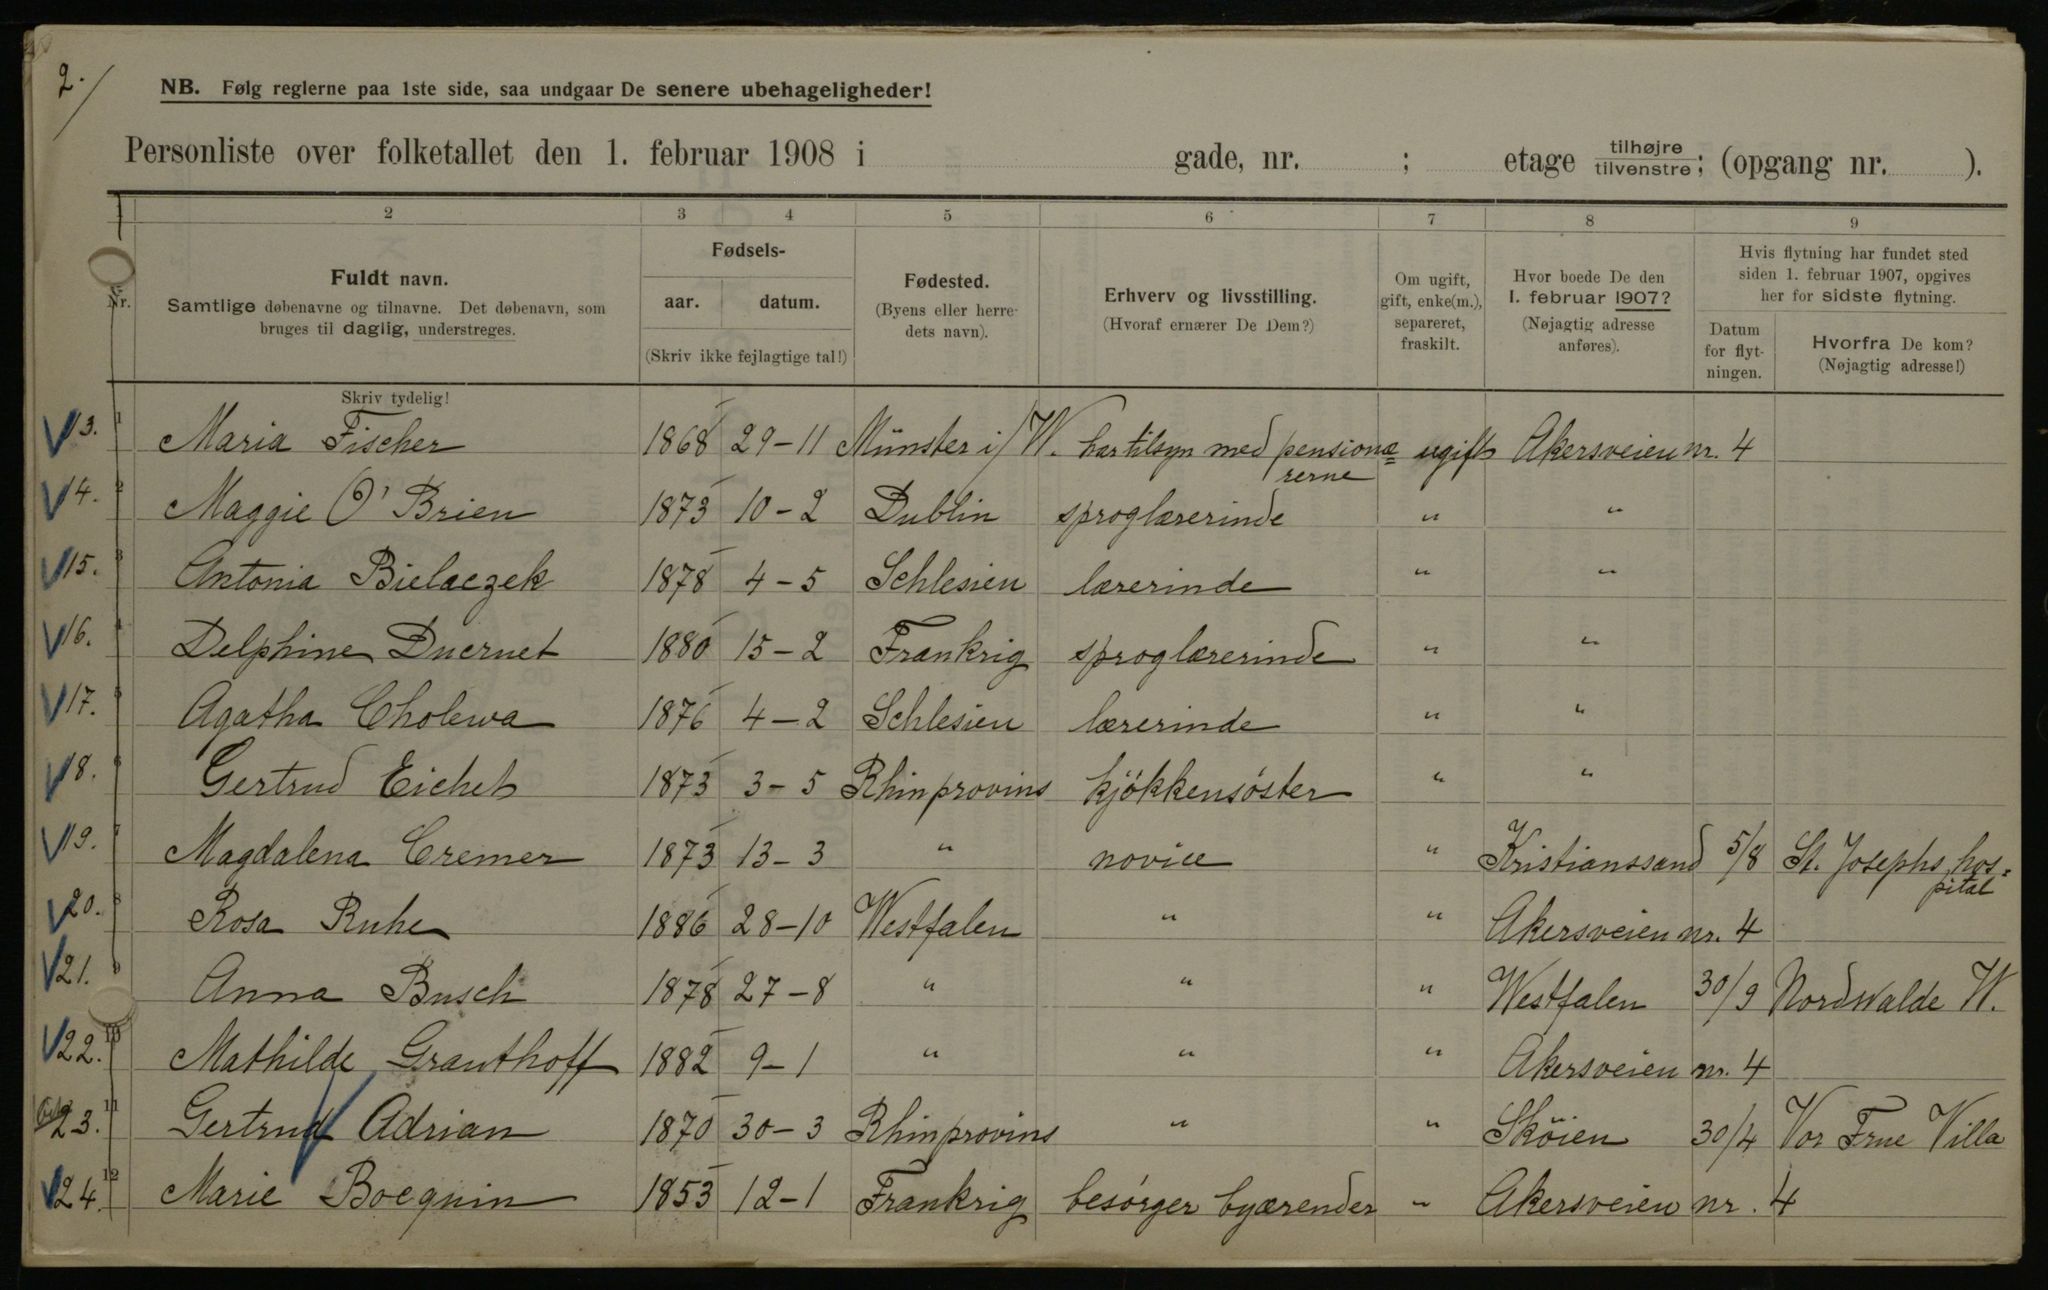 2.
NB. Følg reglerne paa 1ste side, saa undgaar De senere ubehageligheder!
Personliste over folketallet den 1. februar 1908 i gade, nr. ; etage tilhøjre/tilvenstre; (opgang nr. ).
2 3 4 5 6 7 8 9
Nr.
Fuldt navn.
Samtlige døbenavne og tilnavne. Det døbenavn, som
bruges til daglig, understreges.
Fødsels-
aar. datum.
(Skriv ikke fejlagtige tal!)
Fødested.
(Byens eller herre-
dets navn).
Erhverv og livsstilling.
(Hvoraf ernærer De Dem?)
Om ugift,
gift, enke(m.),
separeret,
fraskilt.
Hvor boede De den
1. februar 1907?
(Nøjagtig adresse
anføres).
Hvis flytning har fundet sted
siden 1. februar 1907, opgives
her for sidste flytning.
Datum
for flyt-
ningen.
Hvorfra De kom?
(Nøjagtig adresse!)
Skriv tydelig!
13. 1 Maria Fischer 1868 29-11 Münster i/W. har tilsyn med pensionæ= ugift Akersveien nr. 4
rerne
14. 2 Maggie O'Brien 1873 10-2 Dublin sproglærerinde " "
15. 3 Antonia Bielaczek 1878 4-5 Schlesien lærerinde " "
16. 4 Delphine Ducruet 1880 15-2 Frankrig sproglærerinde " "
17. 5 Agatha Cholewa 1876 4-2 Schlesien lærerinde " "
18. 6 Gertrud Eichet 1873 3-5 Rhinprovins kjökkensöster " "
19. 7 Magdalena Cremer 1873 13-3 " novice " Kristianssand 5/8 St. Josephs hos=
pital
20. 8 Rosa Ruhe 1886 28-10 Westfalen " " Akersveien nr. 4
21. 9 Anna Busch 1878 27-8 " " " Westfalen 30/9 Nordwalde W.
22. 10 Mathilde Granthoff 1882 9-1 " " " Akersveien nr. 4
23. 11 Gertrud Adrian 1870 30-3 Rhinprovins " " Sköien 30/4 Vor Frue Villa
24. 12 Marie Bocquin 1853 12-1 Frankrig besörger byærender " Akersveien nr. 4